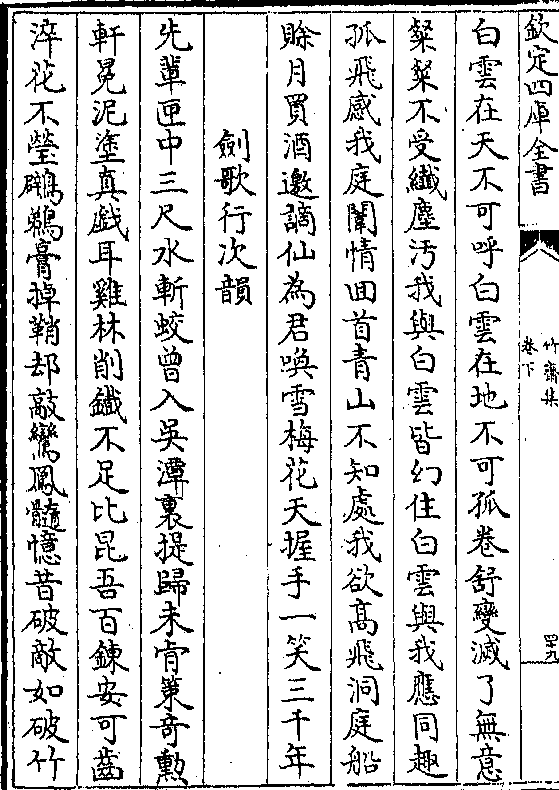 欽定四庫全書
竹齋集
卷下
四十九
白雲在天不可呼白雲在地不可孤卷舒變滅了無意
粲粲不受纎塵汚我與白雲皆幻住白雲與我應同趣
孤飛感我庭闈情囬首青山不知處我欲髙飛洞庭船
賒月買酒邀謫仙為君喚雪梅花天握手一笑三千年
劍歌行次韻
先輩匣中三尺水斬蛟曾入吳潭裏提歸未肯策竒勲
軒冕泥塗真戯耳雞林削鐵不足比昆吾百鍊安可齒
淬花不瑩鸊鵜膏掉鞘却敲鸞鳳髓憶昔破敵如破竹